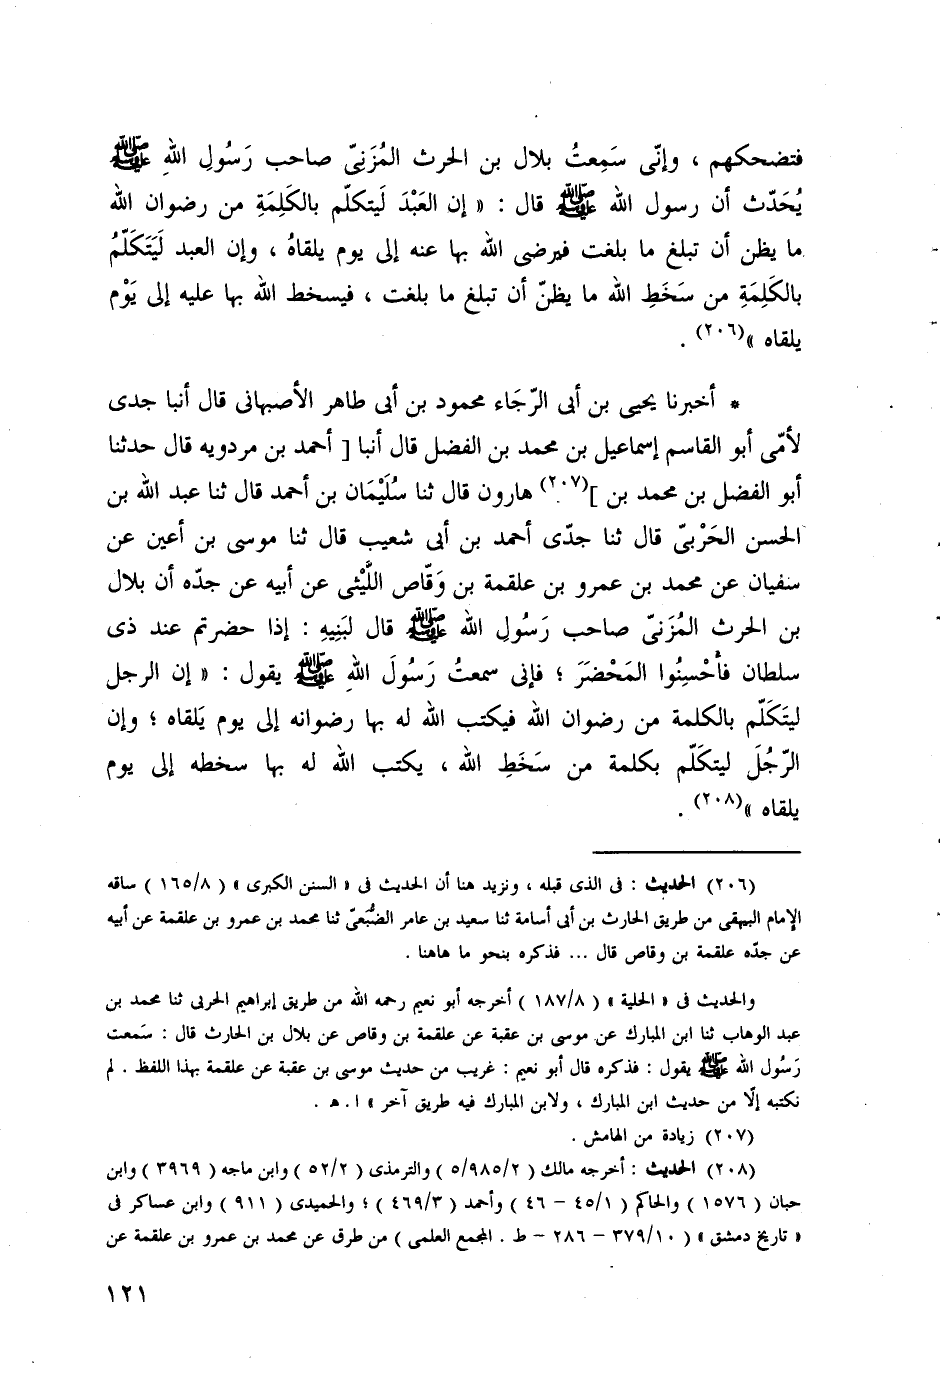 فتضحكهم ، وإنّى سَمِعتُ بلال بن الحرث المُزَنِىّ صاحب رَسُولِ اللهِ ﷺ
يُحَدّث أن رسول الله ﷺ قال : « إن العَبْدَ لَيتكلّم بالكَلِمَةِ من رضوان الله
ما يظن أن تبلغ ما بلغت فيرضى الله بها عنه إلى يوم يلقاهُ ، وإن العبد لَيَتَكَلّمُ
بالكَلِمَةِ من سَخَطِ الله ما يظنّ أن تبلغ ما بلغت ، فيسخط الله بها عليه إلى يَوْم
يلقاه »(٢٠٦) .
* أخبرنا يحيى بن أبى الرّجَاء محمود بن أبى طاهر الأصبهانى قال أنبا جدى
لأمّى أبو القاسم إسماعيل بن محمد بن الفضل قال أنبا [ أحمد بن مردويه قال حدثنا
أبو الفضل بن محمد بن ](٢٠٧) هارون قال ثنا سُلَيْمَان بن أحمد قال ثنا عبد الله بن
الحسن الحَرْبىّ قال ثنا جدّى أحمد بن أبى شعيب قال ثنا موسى بن أعين عن
سفيان عن محمد بن عمرو بن علقمة بن وَقّاص اللَّيْثى عن أبيه عن جدّه أن بلال
بن الحرث المُزَنىّ صاحب رَسُولِ الله ﷺ قال لبَنِيهِ : إذا حضرتم عند ذى
سلطان فأَحْسِنُوا المَحْضَرَ ؛ فإنى سمعتُ رَسُولَ اللهِ ﷺ يقول : « إن الرجل
ليتَكَلّم بالكلمة من رضوان الله فيكتب الله له بها رضوانه إلى يوم يَلقاه ؛ وإن
الرّجُلَ ليتكَلّم بكلمة من سَخَطِ الله ، يكتب الله له بها سخطه إلى يوم
يلقاه »(٢٠٨) .
(٢٠٦) الحديث : فى الذى قبله ، ونزيد هنا أن الحديث فى « السنن الكبرى » ( ١٦٥/٨ ) ساقه
الإمام البيهقى من طريق الحارث بن أبى أسامة ثنا سعيد بن عامر الضُّبَعىّ ثنا محمد بن عمرو بن علقمة عن أبيه
عن جدّه علقمة بن وقاص قال ... فذكره بنحو ما هاهنا .
والحديث فى « الحلية » ( ١٨٧/٨ ) أخرجه أبو نعيم رحمه الله من طريق إبراهيم الحربى ثنا محمد بن
عبد الوهاب ثنا ابن المبارك عن موسى بن عقبة عن علقمة بن وقاص عن بلال بن الحارث قال : سَمعت
رَسُول الله ﷺ يقول : فذكره قال أبو نعيم : غريب من حديث موسى بن عقبة عن علقمة بهذا اللفظ . لم
نكتبه إلّا من حديث ابن المبارك ، ولابن المبارك فيه طريق آخر » ا . هـ .
(٢٠٧) زيادة من الهامش .
(٢٠٨) الحديث : أخرجه مالك ( ٥/٩٨٥/٢ ) والترمذى ( ٥٢/٢ ) وابن ماجه ( ٣٩٦٩ ) وابن
حبان ( ١٥٧٦ ) والحاكم ( ٤٥/١ - ٤٦ ) وأحمد ( ٤٦٩/٣ ) ؛ والحميدى ( ٩١١ ) وابن عساكر فى
« تاريخ دمشق » ( ٣٧٩/١٠ - ٢٨٦ - ط . المجمع العلمى ) من طرق عن محمد بن عمرو بن علقمة عن
١٢١